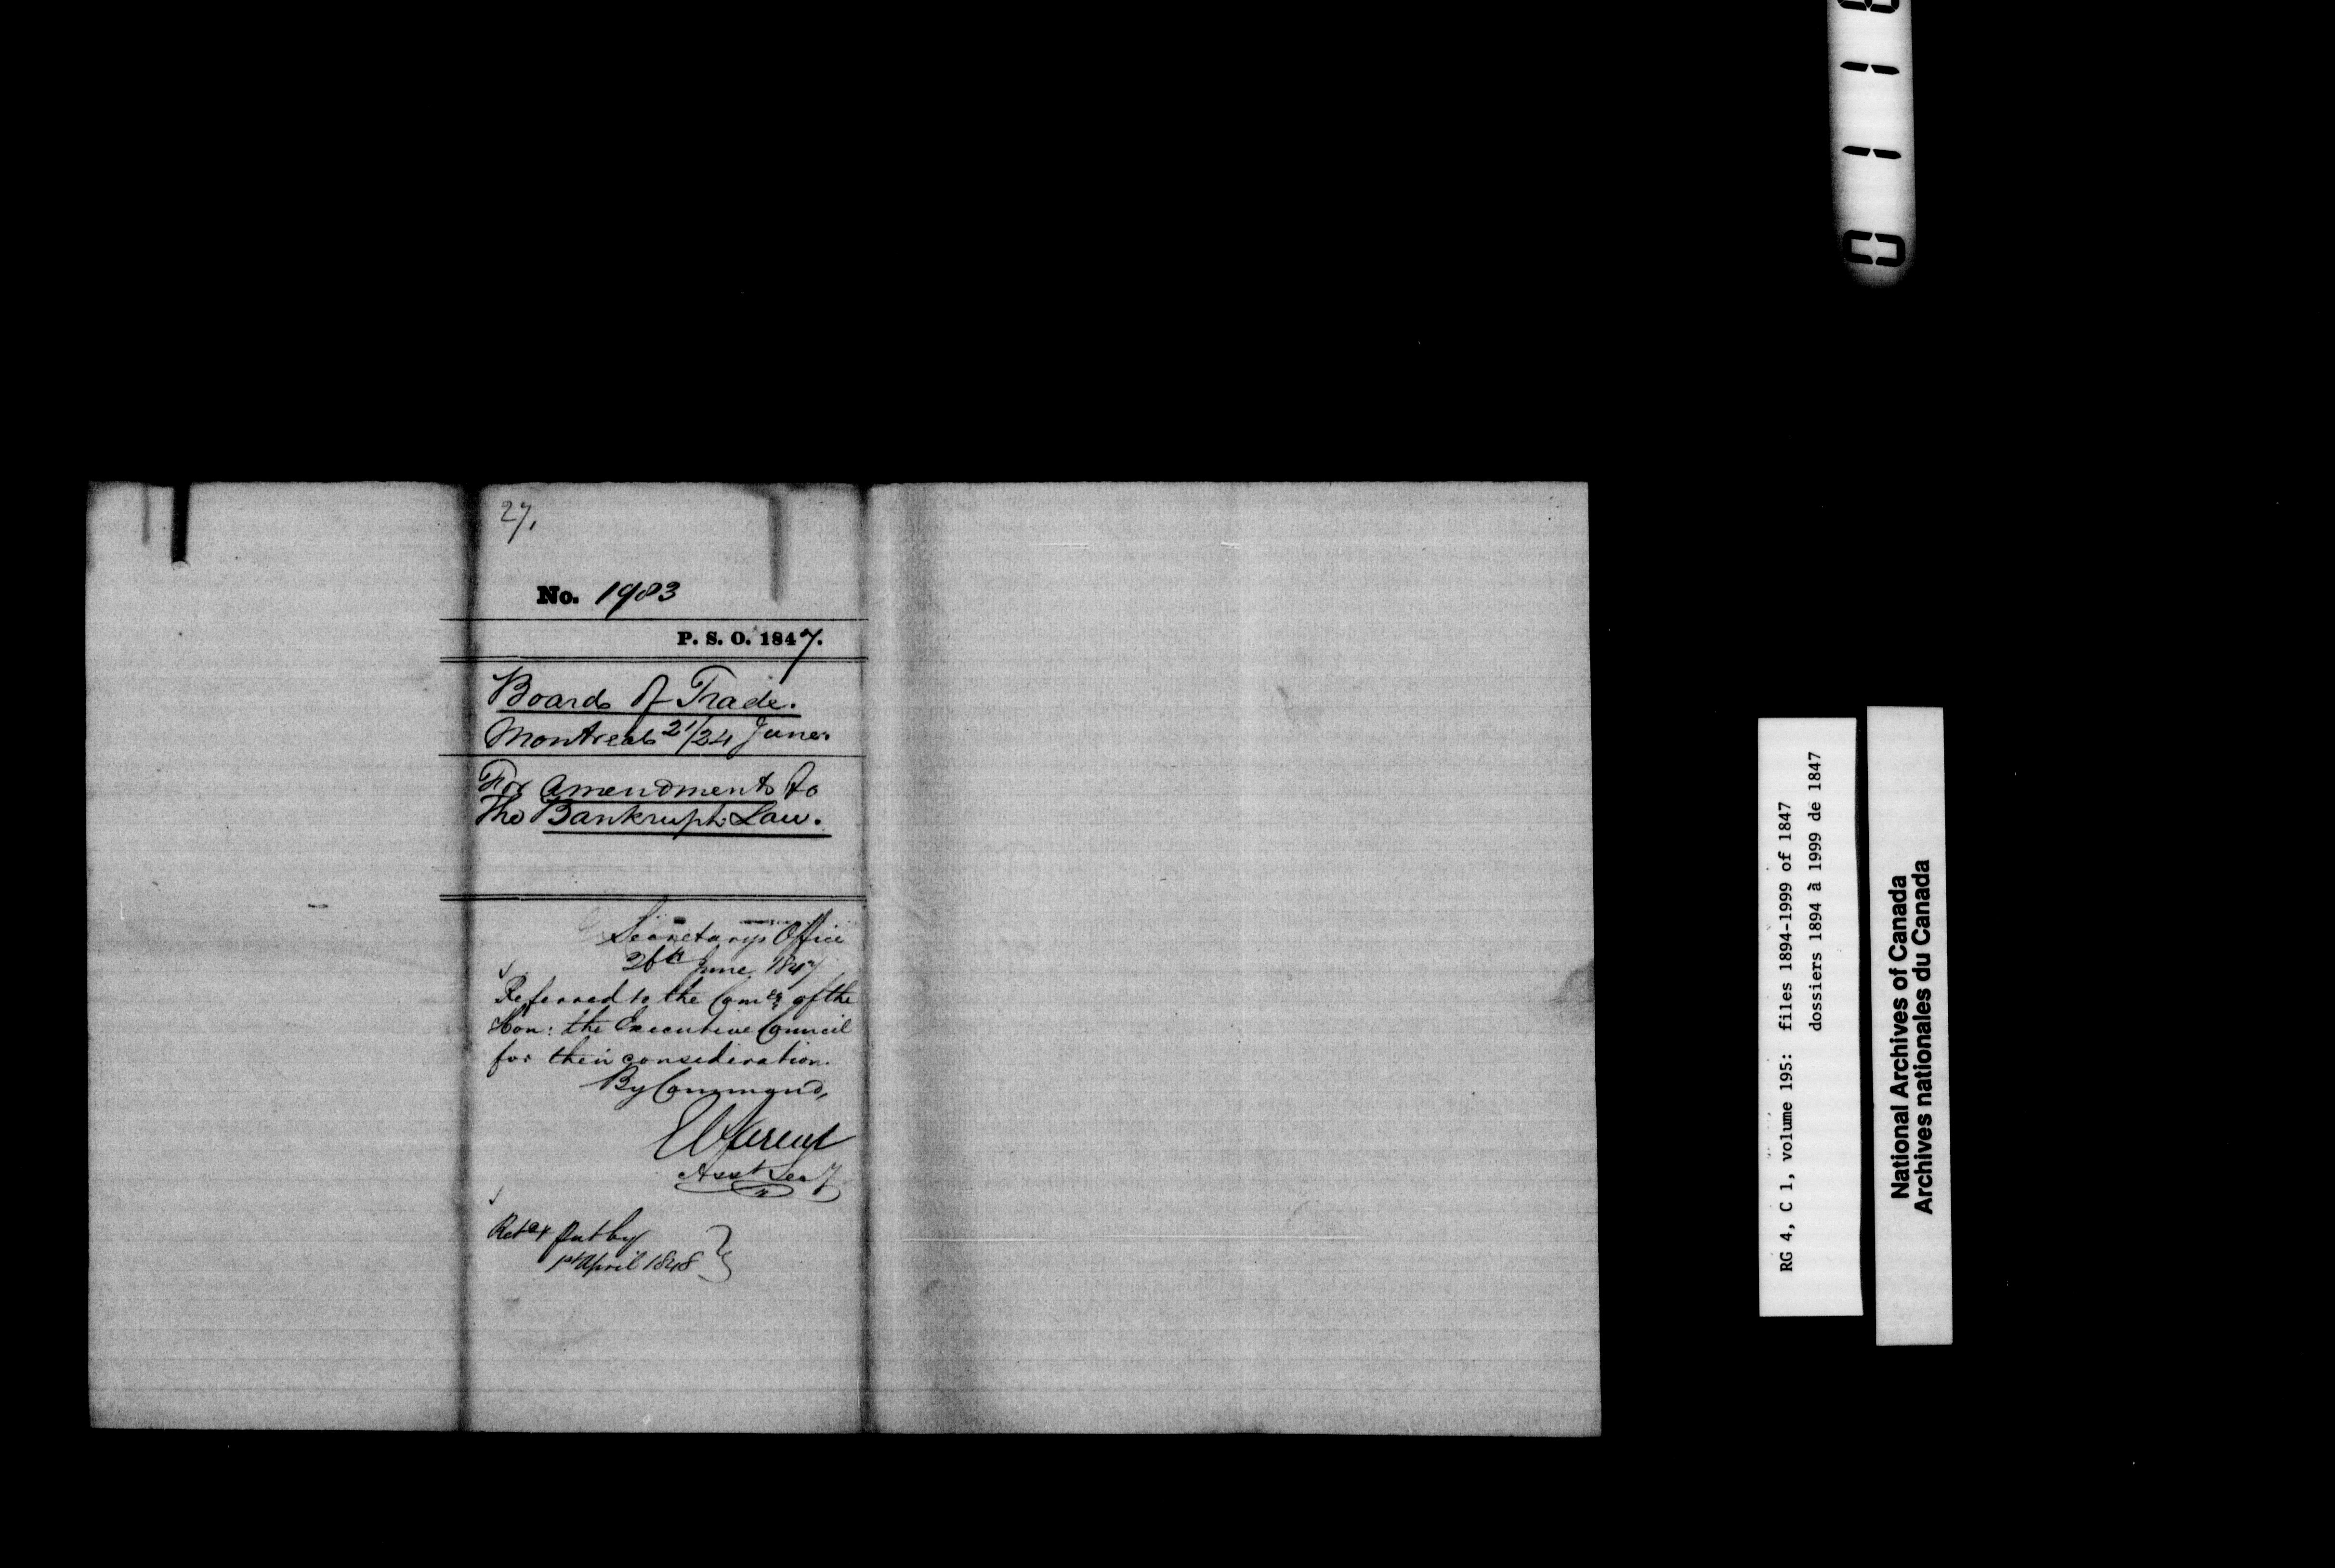 27,
No. 1983
P. S. O. 1847.
Board of Trade.
Montreal 21/24 June.
For amendments to
The Bankrupt Law.
Secretary's Office
26th June 1847
Referred to the Comee of the
Hon: the Executive Council
for their consideration.
By Command,
E Parent
Asst Secy
put by
1st April 1848
011
RG 4, C 1, volume 195: files 1894-1999 of 1847
dossiers 1894 à 1999 de 1847
National Archives of Canada
Archives nationales du Canada